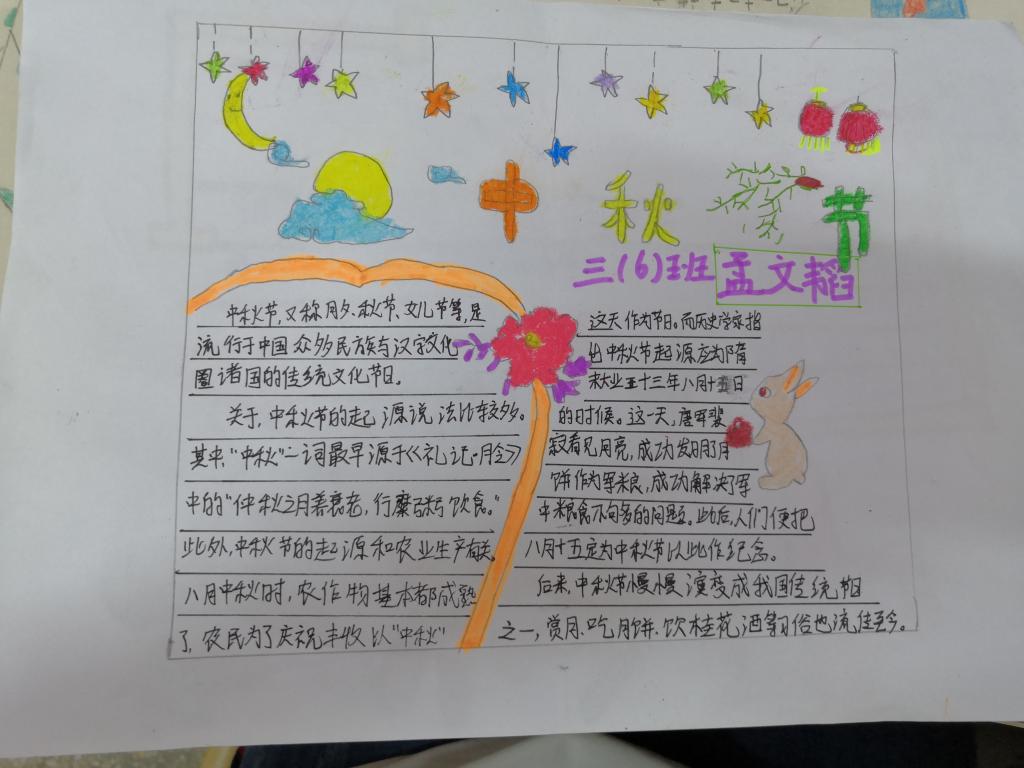 中秋节
三(6)班 孟文韬
中秋节,又称月夕、秋节、女儿节等,是
流行于中国众多民族与汉字文化
圈诸国的传统文化节日。
关于,中秋节的起源说,法比较多。
其中,"中秋"一词最早源于《礼记·月令》
中的"仲秋之月养衰老,行糜粥饮食。"
此外,中秋节的起源和农业生产有关。
八月中秋时,农作物基本都成熟
了,农民为了庆祝丰收以"中秋"
这天作为节日。而历史学家指
出中秋节起源应为隋
末大业十三年八月十五日
的时候。这一天,唐军裴
寂看见月亮,成功发明了月
饼作为军粮,成功解决了军
中粮食不够多的问题。此后,人们便把
八月十五定为中秋节以此作纪念。
后来,中秋节慢慢演变成我国传统节日
之一,赏月、吃月饼、饮桂花酒等习俗也流传至今。